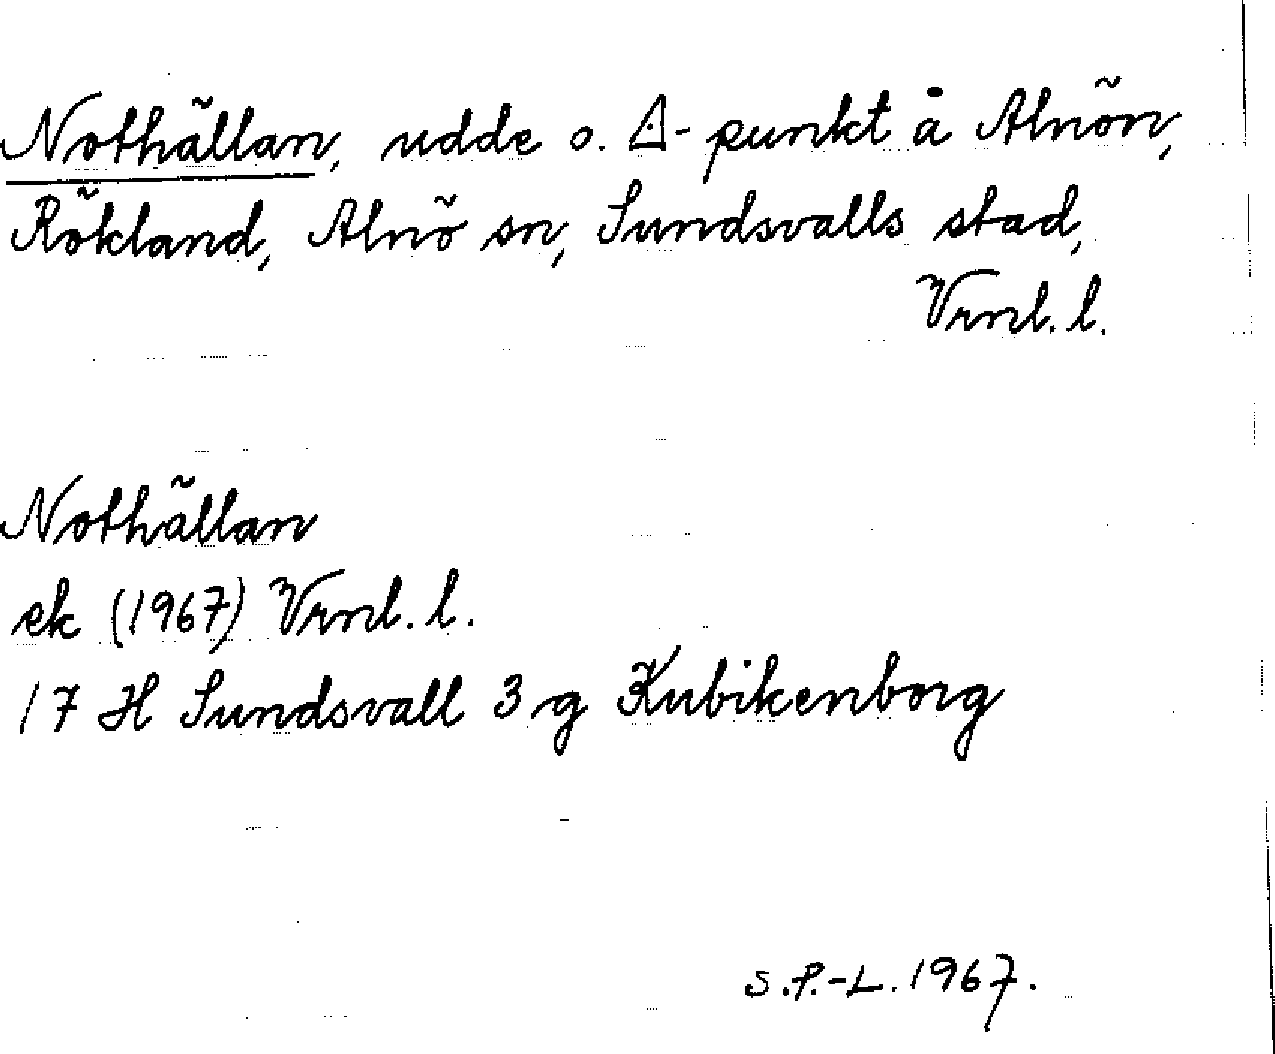 Nothällan, udde o. Δ-punkt å Alnön,
Rökland, Alnö sn, Sundsvalls stad,
Vrnl. l.
Nothällan
ek (1967) Vrnl. l.
17 H Sundsvall 3 g Kubikenborg
S.P.-L. 1967.